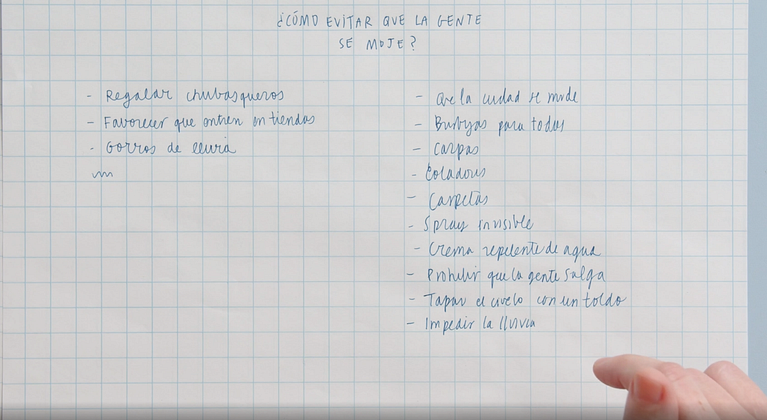 ¿CÓMO EVITAR QUE LA GENTE
SE MOJE?
- Regalar chubasqueros
- Favorecer que entren en tiendas
- Gorros de lluvia
- Que la ciudad se mude
- Burbujas para todos
- Carpas
- Carpetas
- Spray invisible
- Crema repelente de agua
- Prohibir que la gente salga
- Tapar el cielo con un toldo
- Impedir la lluvia